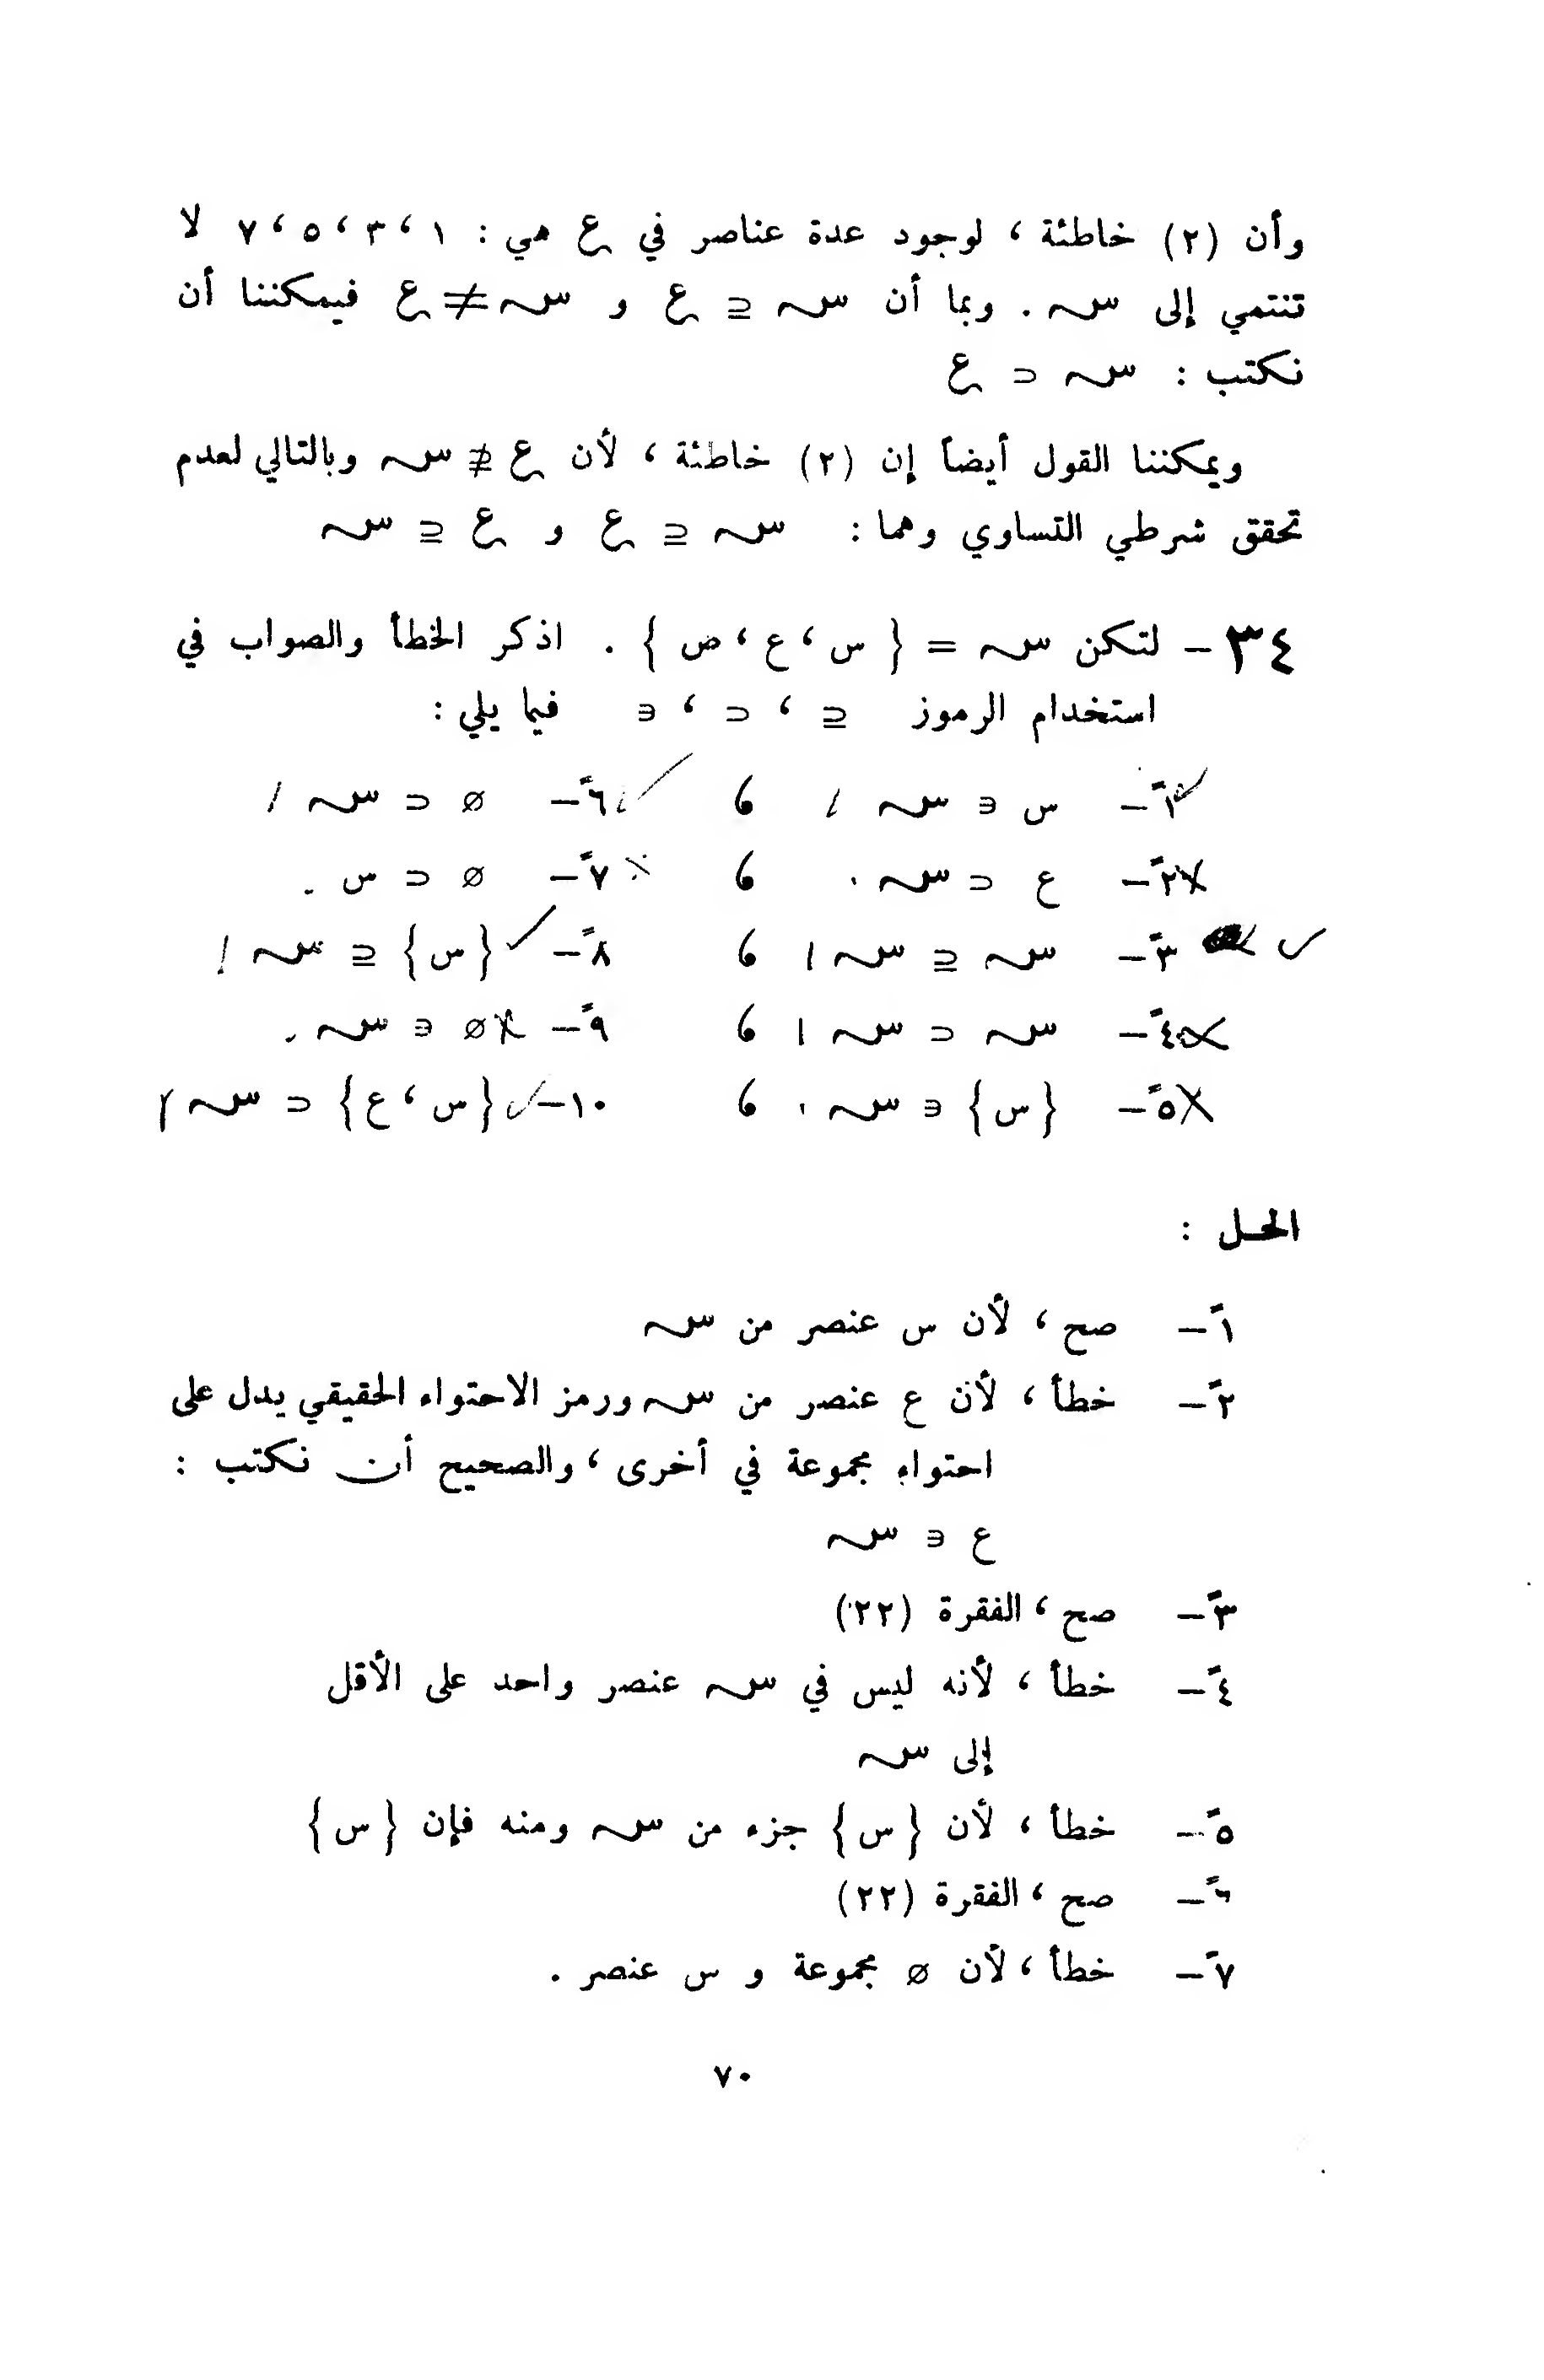 وأن (٢) خاطئة ، لوجود عدة عناصر في ع هي : ١ ، ٣ ، ٥ ، ٧ لا
تنتمي إلى سـ . وبما أن سـ ⊆ ع و سـ ≠ ع فيمكننا أن
نكتب : سـ ⊂ ع
ويمكننا القول أيضاً إن (٢) خاطئة ، لأن ع ⊈ سـ وبالتالي لعدم
تحقق شرطي التساوي وهما : سـ ⊆ ع و ع ⊆ سـ
٣٤ – لتكن سـ = { س ، ع ، ص } . اذكر الخطأ والصواب في
استخدام الرموز ⊆ ، ⊂ ، ∈ فيما يلي :
١ً – س ∈ سـ ، ٦ً – ∅ ⊂ سـ
٢ً – ع ⊂ سـ ، ٧ً – ∅ ⊂ س .
٣ً – سـ ⊆ سـ ، ٨ً – {س} ⊆ سـ
٤ً – سـ ⊂ سـ ، ٩ً – ∅ ∈ سـ .
٥ً – {س} ∈ سـ ، ١٠ – {س ، ع} ⊂ سـ
الحـل :
١ً – صح ، لأن س عنصر من سـ
٢ً – خطأ ، لأن ع عنصر من سـ ورمز الاحتواء الحقيقي يدل على
احتواء مجموعة في أخرى ، والصحيح أن نكتب :
ع ∈ سـ
٣ً – صح ، الفقرة (٢٢)
٤ً – خطأ ، لأنه ليس في سـ عنصر واحد على الأقل
إلى سـ
٥ً – خطأ ، لأن {س} جزء من سـ ومنه فإن {س}
٦ً – صح ، الفقرة (٢٢)
٧ً – خطأ ، لأن ∅ مجموعة و س عنصر .
٧٠